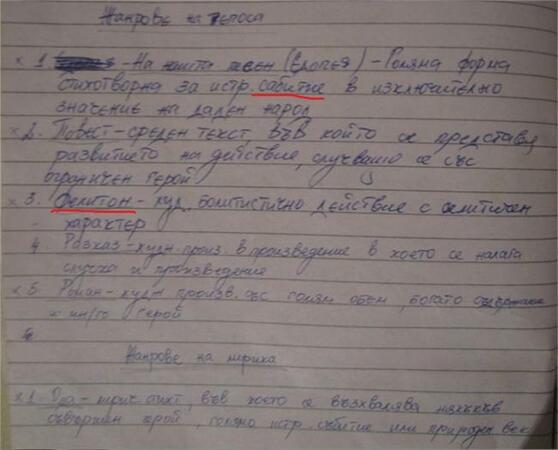 Жанрове на епоса
x 1. -На нашта песен (Епопея) - Голяма форма
стихотворна за истр. сабитие в изключително
значение на даден народ
x 2. Повест - среден текст във който се представя
развитието на действие, случващо се със
ограничен герой
x 3. Фелитон - худ. болитистично действие с
характер
4. Разказ - худн. произ. в произведение в което се налага
случка и произведение
x 5. Роман - худн произв. със голям обем, богато
и мн/го герой
Жанрове на лирика
x 1. Ода - лирич. във което се възхвалява някакъв
съвършен герой, голямо истр. събитие или природен век